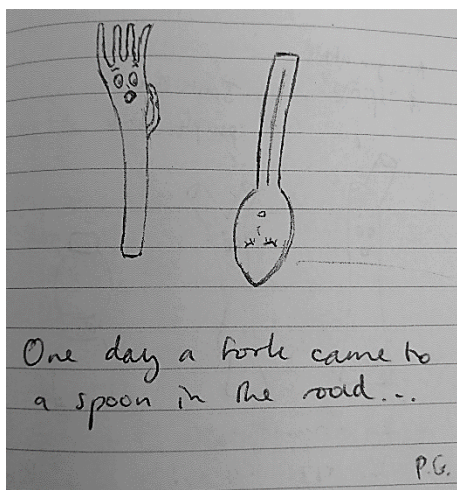 One day a fork came to
a spoon in the road...
P.G.